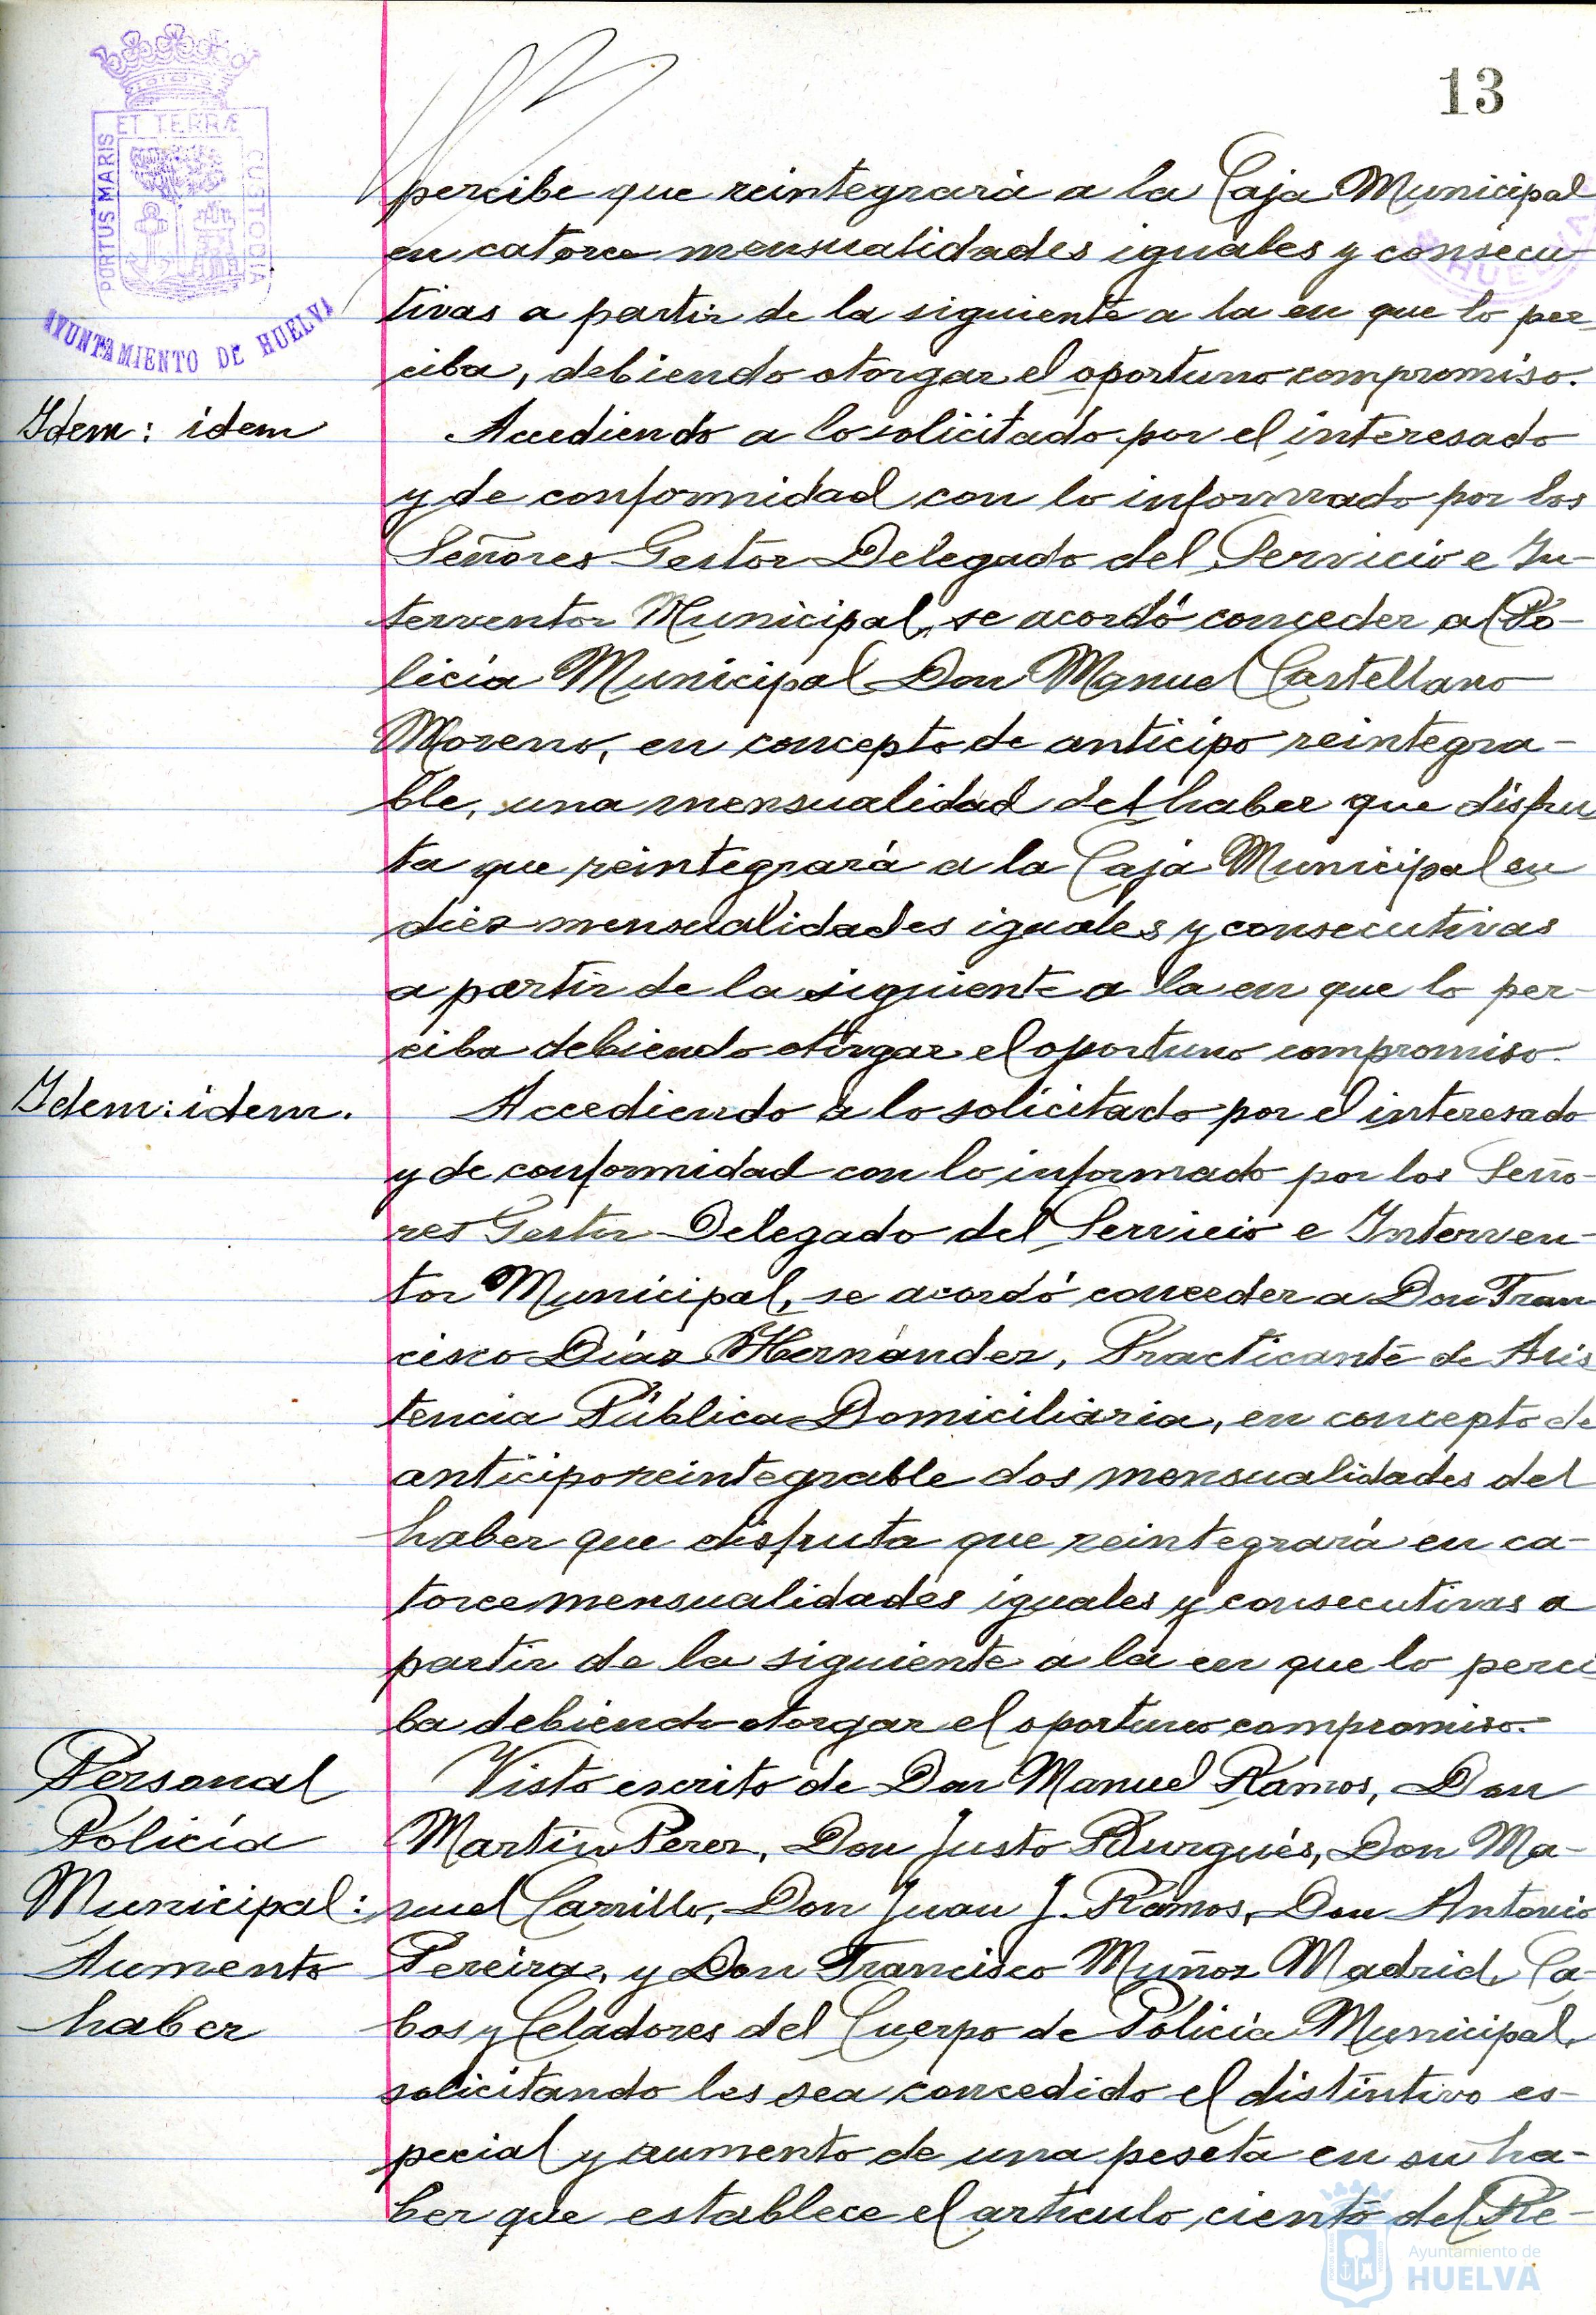 13
ET TERRÆ
PORTUS MARIS
CUSTODIA
AYUNTAMIENTO DE HUELVA
HUELVA
percibe que reintegrará a la Caja Municipal
en catorce mensualidades iguales y consecu-
tivas a partir de la siguiente a la en que lo per-
ciba, debiendo otorgar el oportuno compromiso.
Idem: idem
Accediendo a lo solicitado por el interesado
y de conformidad con lo informado por los
Señores Gestor Delegado del Servicio e In-
terventor Municipal, se acordó conceder al Po-
licía Municipal Don Manuel Castellano
Moreno, en concepto de anticipo reintegra-
ble, una mensualidad del haber que disfru
ta que reintegrará a la Caja Municipal en
diez mensualidades iguales y consecutivas
a partir de la siguiente a la en que lo per-
ciba debiendo otorgar el oportuno compromiso.
Idem: idem.
Accediendo a lo solicitado por el interesado
y de conformidad con lo informado por los Seño-
res Gestor Delegado del Servicio e Interven-
tor Municipal, se acordó conceder a Don Fran
cisco Díaz Hernández, Practicante de Asis
tencia Pública Domiciliaria, en concepto de
anticipo reintegrable dos mensualidades del
haber que disfruta que reintegrará en ca-
torce mensualidades iguales y consecutivas a
partir de la siguiente a la en que lo perci
ba debiendo otorgar el oportuno compromiso.
Personal
Policía
Municipal:
Aumento
haber
Visto escrito de Don Manuel Ramos, Don
Martín Perez, Don Justo Burgués, Don Ma-
nuel Carrillo, Don Juan J. Ramos, Don Antonio
Pereira, y Don Francisco Muñoz Madrid, Ca-
bos y Celadores del Cuerpo de Policía Municipal,
solicitando les sea concedido el distintivo es-
pecial y aumento de una peseta en su ha-
ber que establece el artículo ciento del Re-
Ayuntamiento de
HUELVA